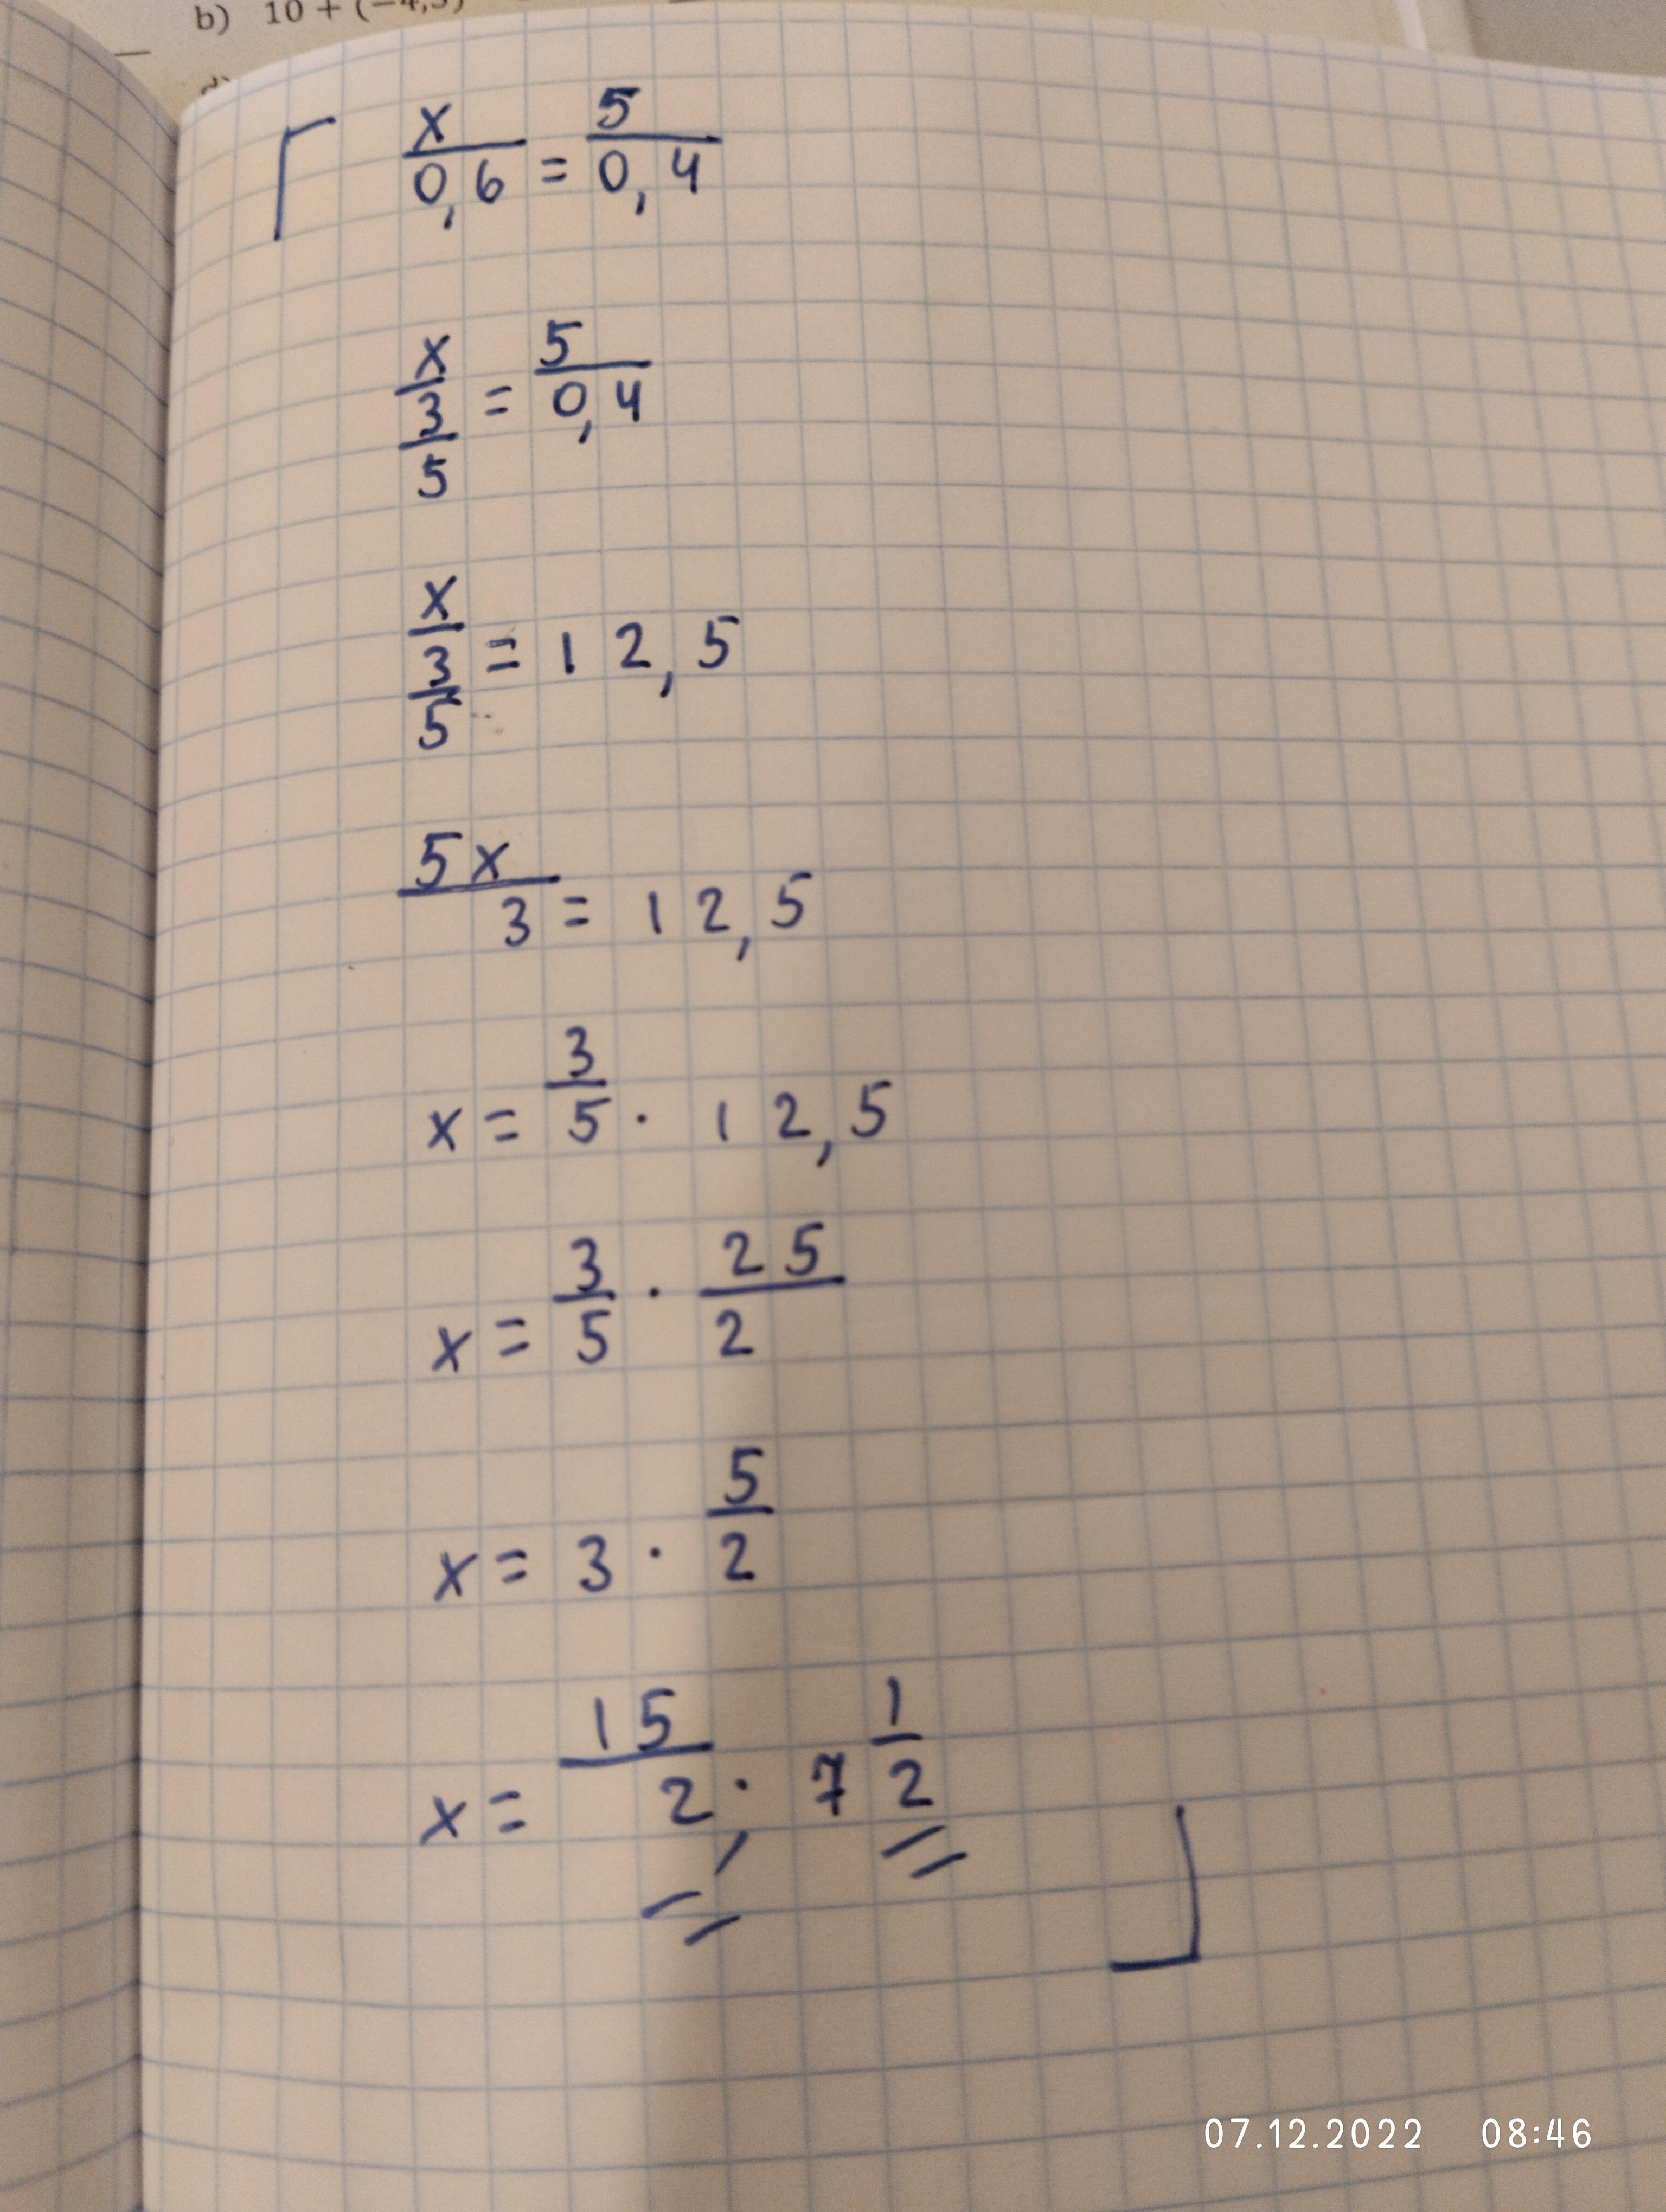 b) 10 + (−4,5)
d)
x/0,6 = 5/0,4
x/(3/5) = 5/0,4
x/(3/5) = 12,5
5x/3 = 12,5
x = 3/5 · 12,5
x = 3/5 · 25/2
x = 3 · 5/2
x = 15/2; 7 1/2
07.12.2022 08:46